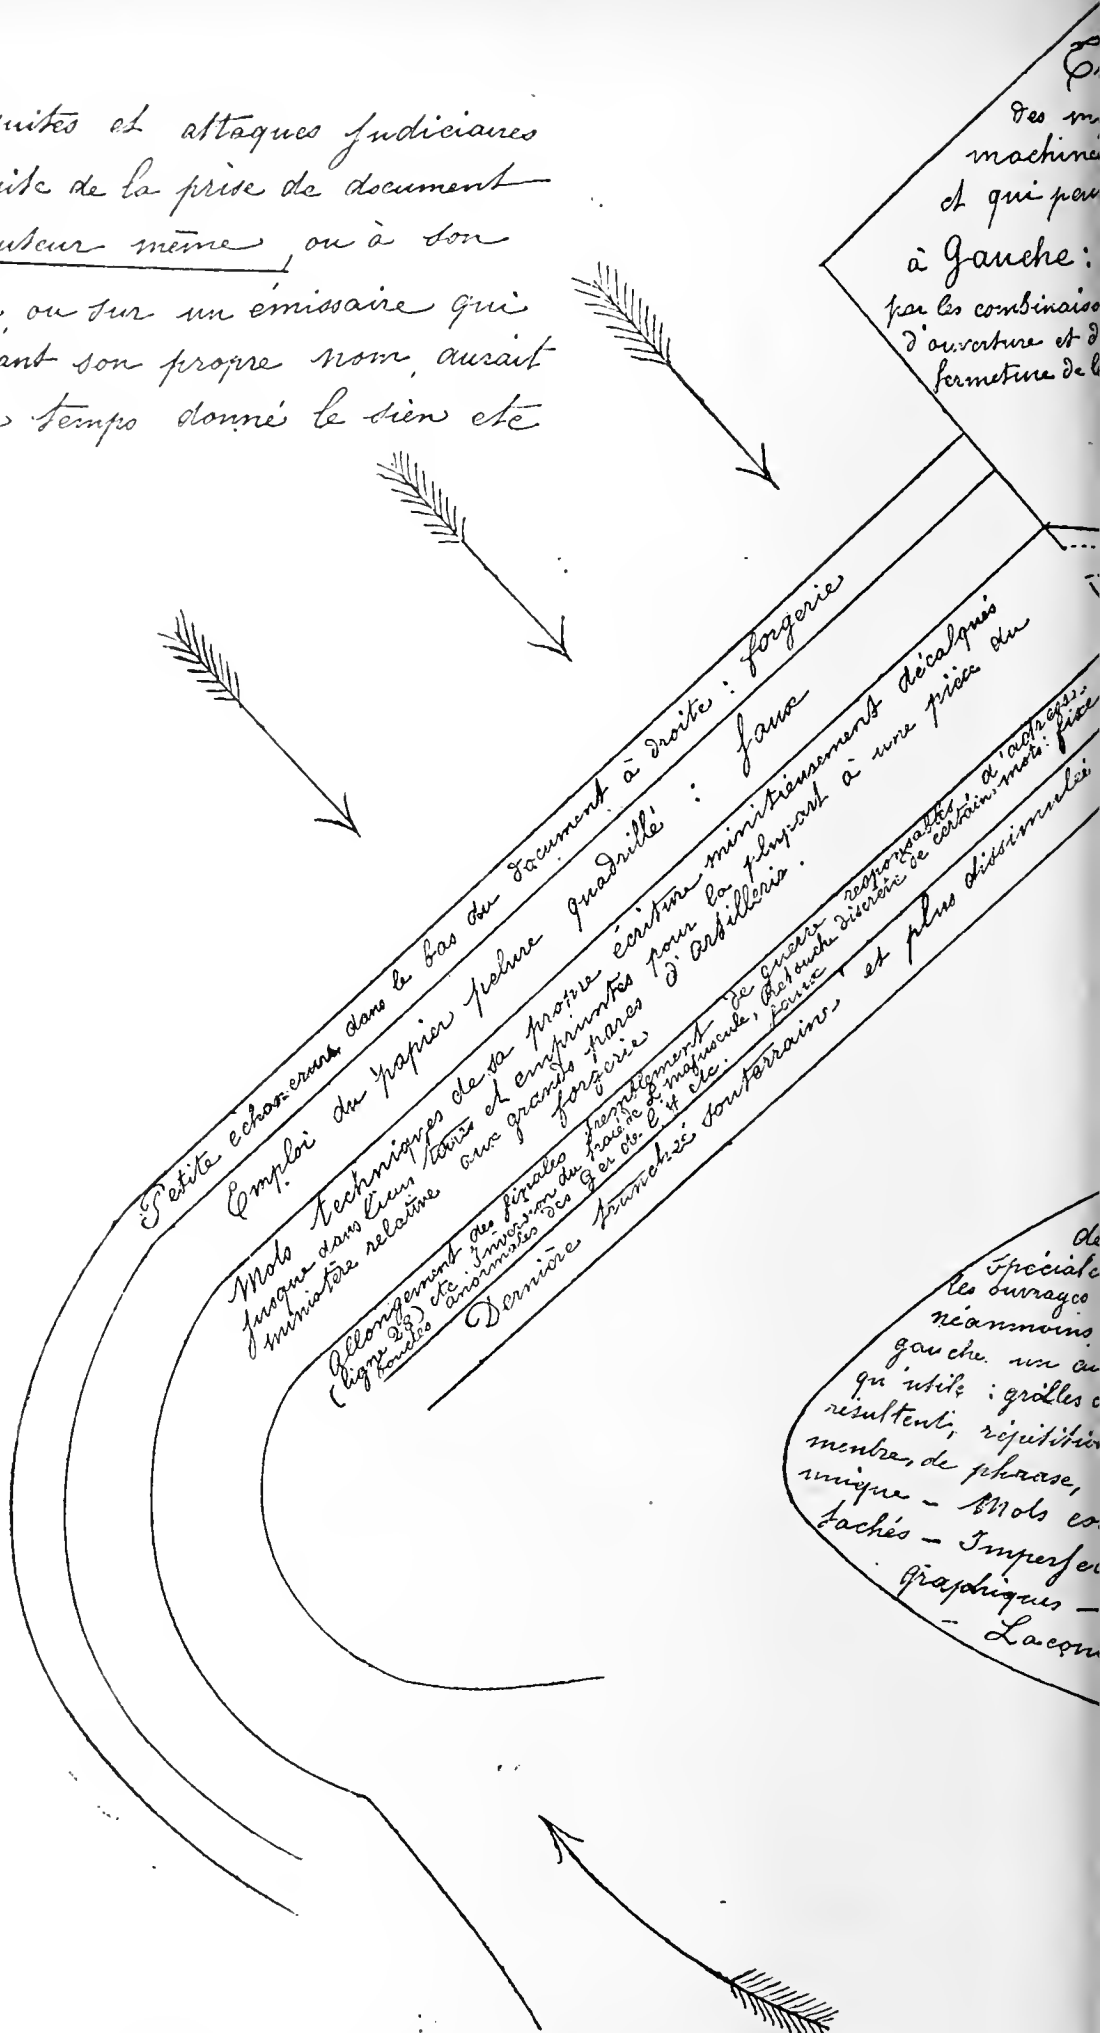 uites et attaques judiciaires
uite de la prise de document
uteur même, ou à son
, ou sur un émissaire qui
ant son propre nom, aurait
temps donné le sien etc
des m
machine
et qui peu
à Gauche :
par les combinaiso
d'ouverture et d
fermeture de l
Petite echancrure dans le bas du document à droite : forgerie
Emploi du papier pelure quadrillé : faux
Mots techniques de sa propre écriture minitieusement décalqués
jusque dans leurs et empruntes pour la plupart à une pièce du
ministère relative aux grands parcs d'artillerie.
forgerie
Allongement des finales de guerre responsables d'adress-
(ligne 28) etc. Inversion du tracé de l'M majuscule, Retouche discrète de certains mots : fixe
boucles anormales des g et de l'y etc. faux
Dernière tranchée souterraine et plus dissimulée
de
spéciale
les ouvrages
néanmoins
gauche un au
qu'utile : grilles c
résultent, répétitio
membres de phrase,
unique – Mots es
tachés – Imperfec
graphiques –
– Laconi